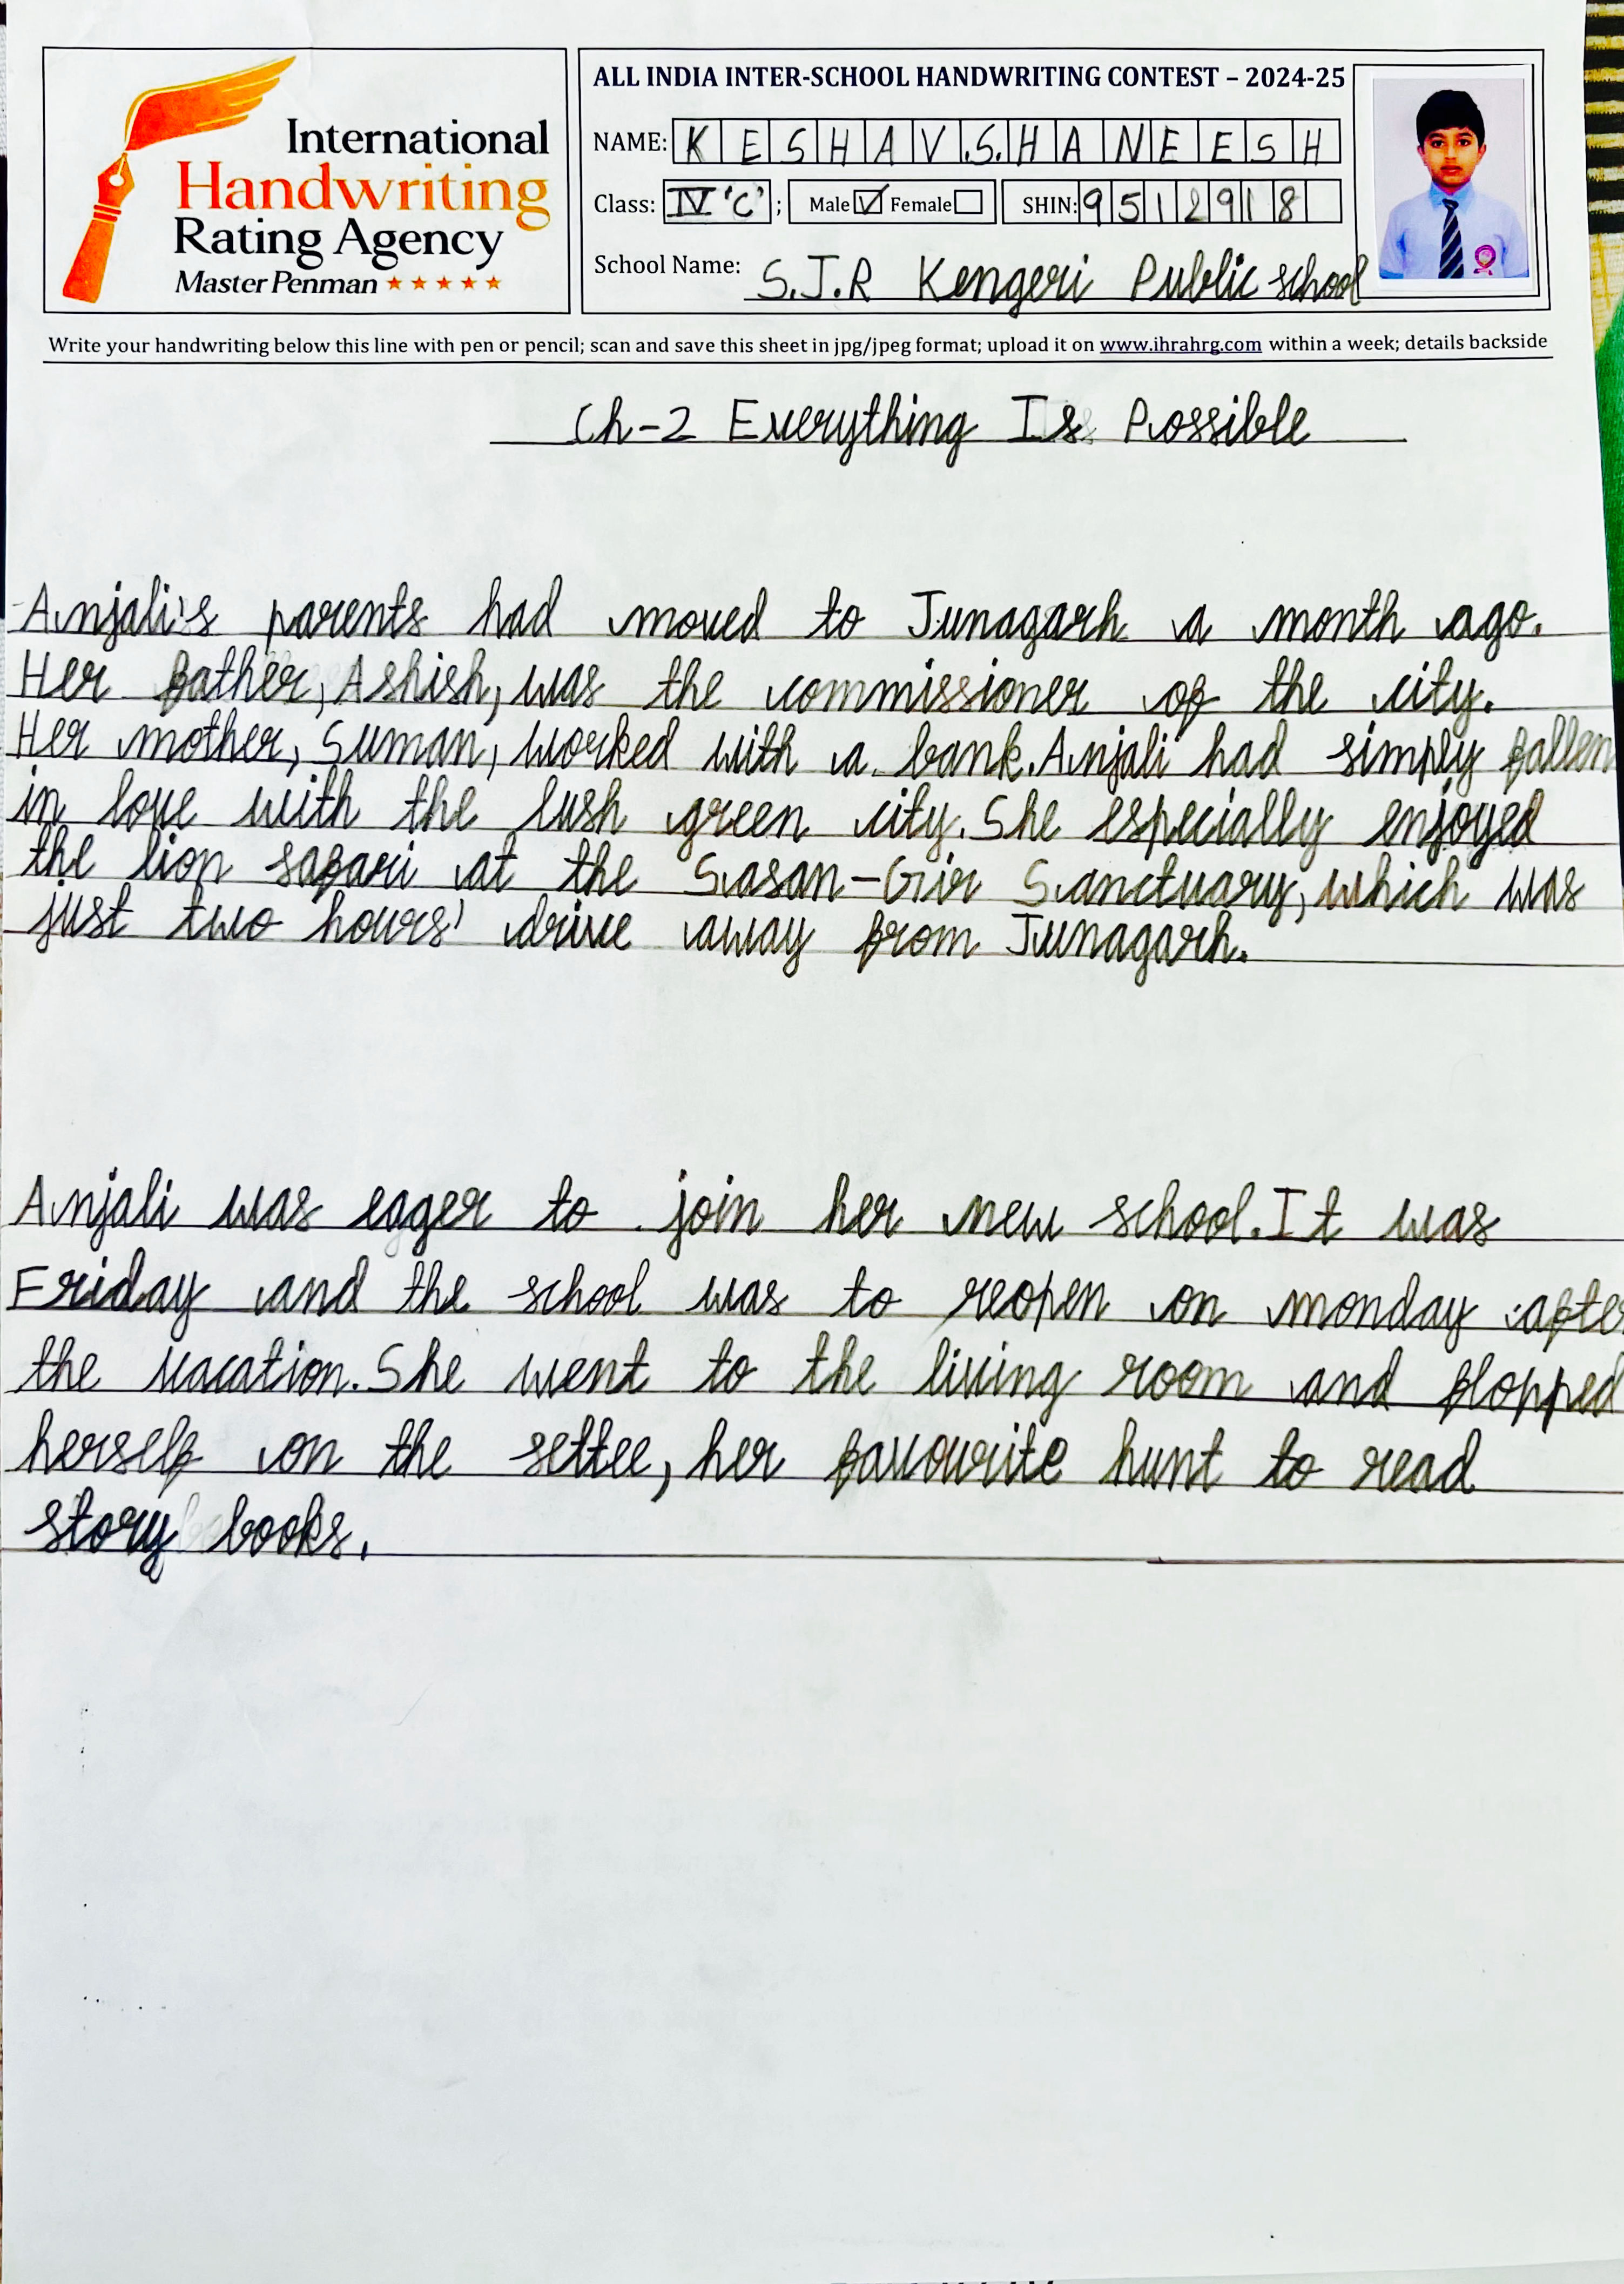 International
Handwriting
Rating Agency
Master Penman
ALL INDIA INTER-SCHOOL HANDWRITING CONTEST – 2024-25
NAME: KESHAV.S.HANEESH
Class: IV 'C' ; Male Female SHIN: 9512918
School Name: S.J.R Kengeri Public school
Write your handwriting below this line with pen or pencil; scan and save this sheet in jpg/jpeg format; upload it on www.ihrahrg.com within a week; details backside
Ch-2 Everything Is Possible
Anjali's parents had moved to Junagarh a month ago.
Her father, Ashish, was the commissioner of the city.
Her mother, Suman, worked with a bank. Anjali had simply fallen
in love with the lush green city. She especially enjoyed
the lion safari at the Sasan-Gir Sanctuary, which was
just two hours' drive away from Junagarh.
Anjali was eager to join her new school. It was
Friday and the school was to reopen on monday after
the vacation. She went to the living room and flopped
herself on the settee, her favourite hunt to read
story books.